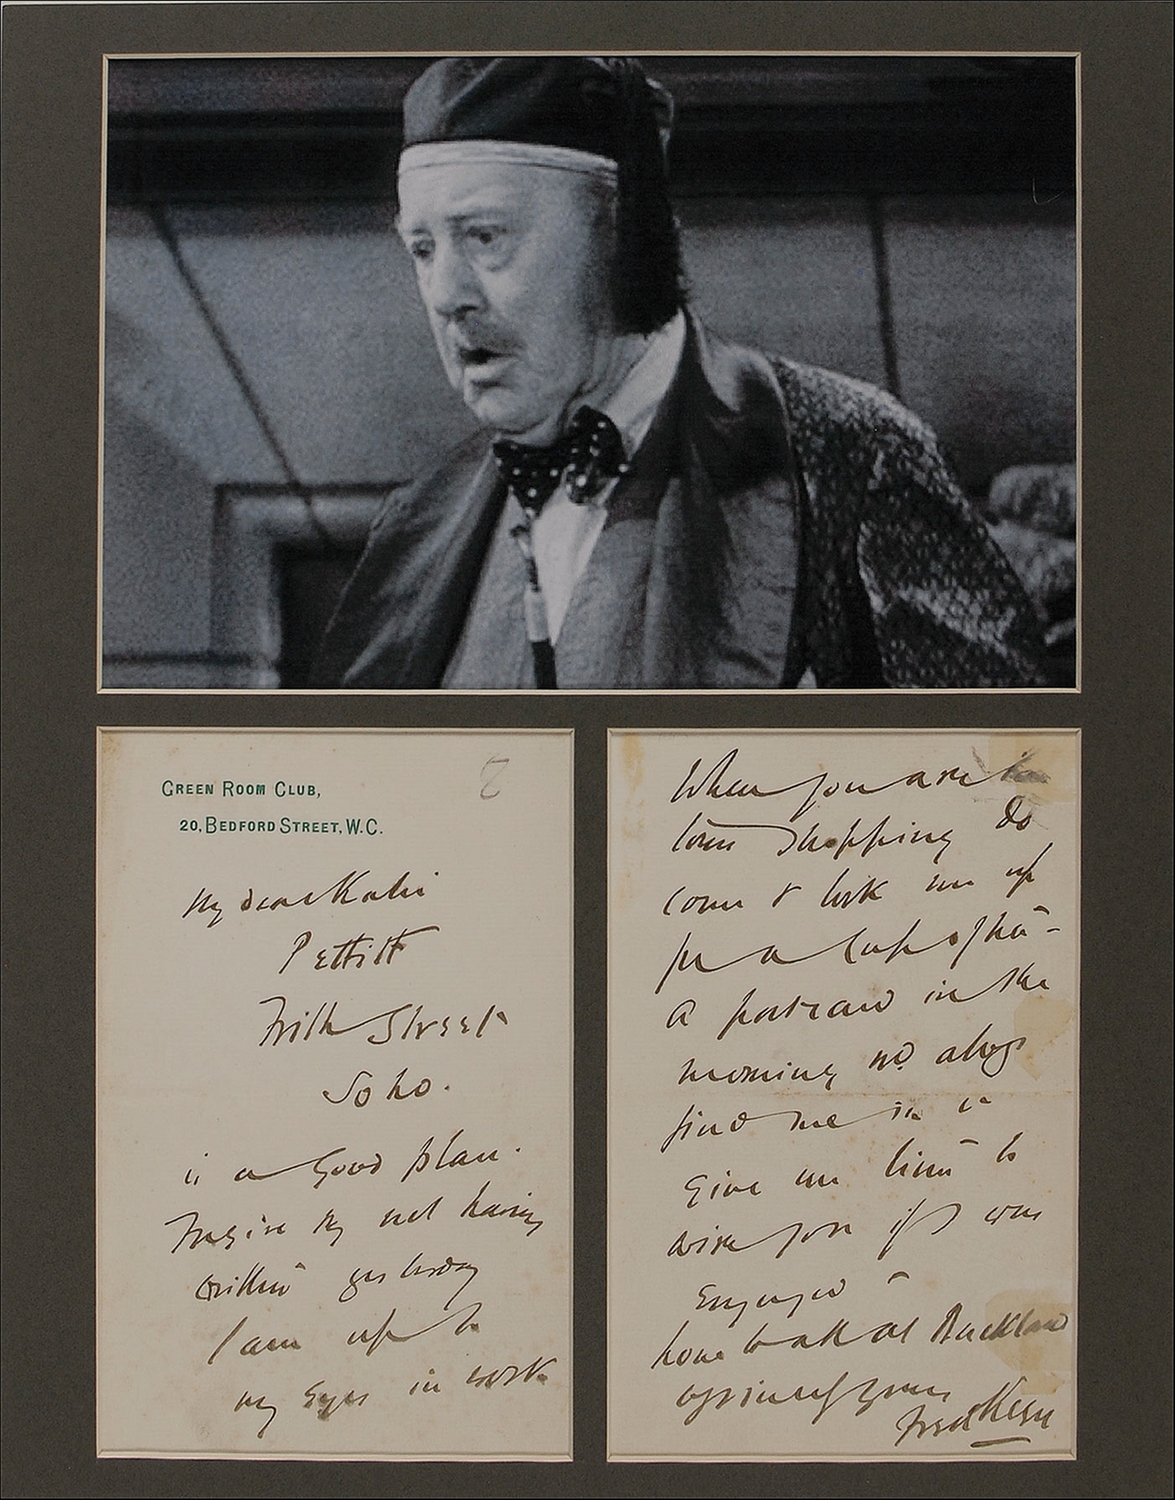 GREEN ROOM CLUB,
20, BEDFORD STREET, W.C.
8
My dear Katie
Pettitt
Frith Street
Soho.
is a good plan.
Forgive my not having
written yesterday
I am up to
my Eyes in work
When you are in
town shopping do
come & look me up
for a cup of tea -
A postcard in the
morning wd always
find me in &
give me time to
wire you if I was
Engaged -
love to all at Buckland
yours
Fred Kerr